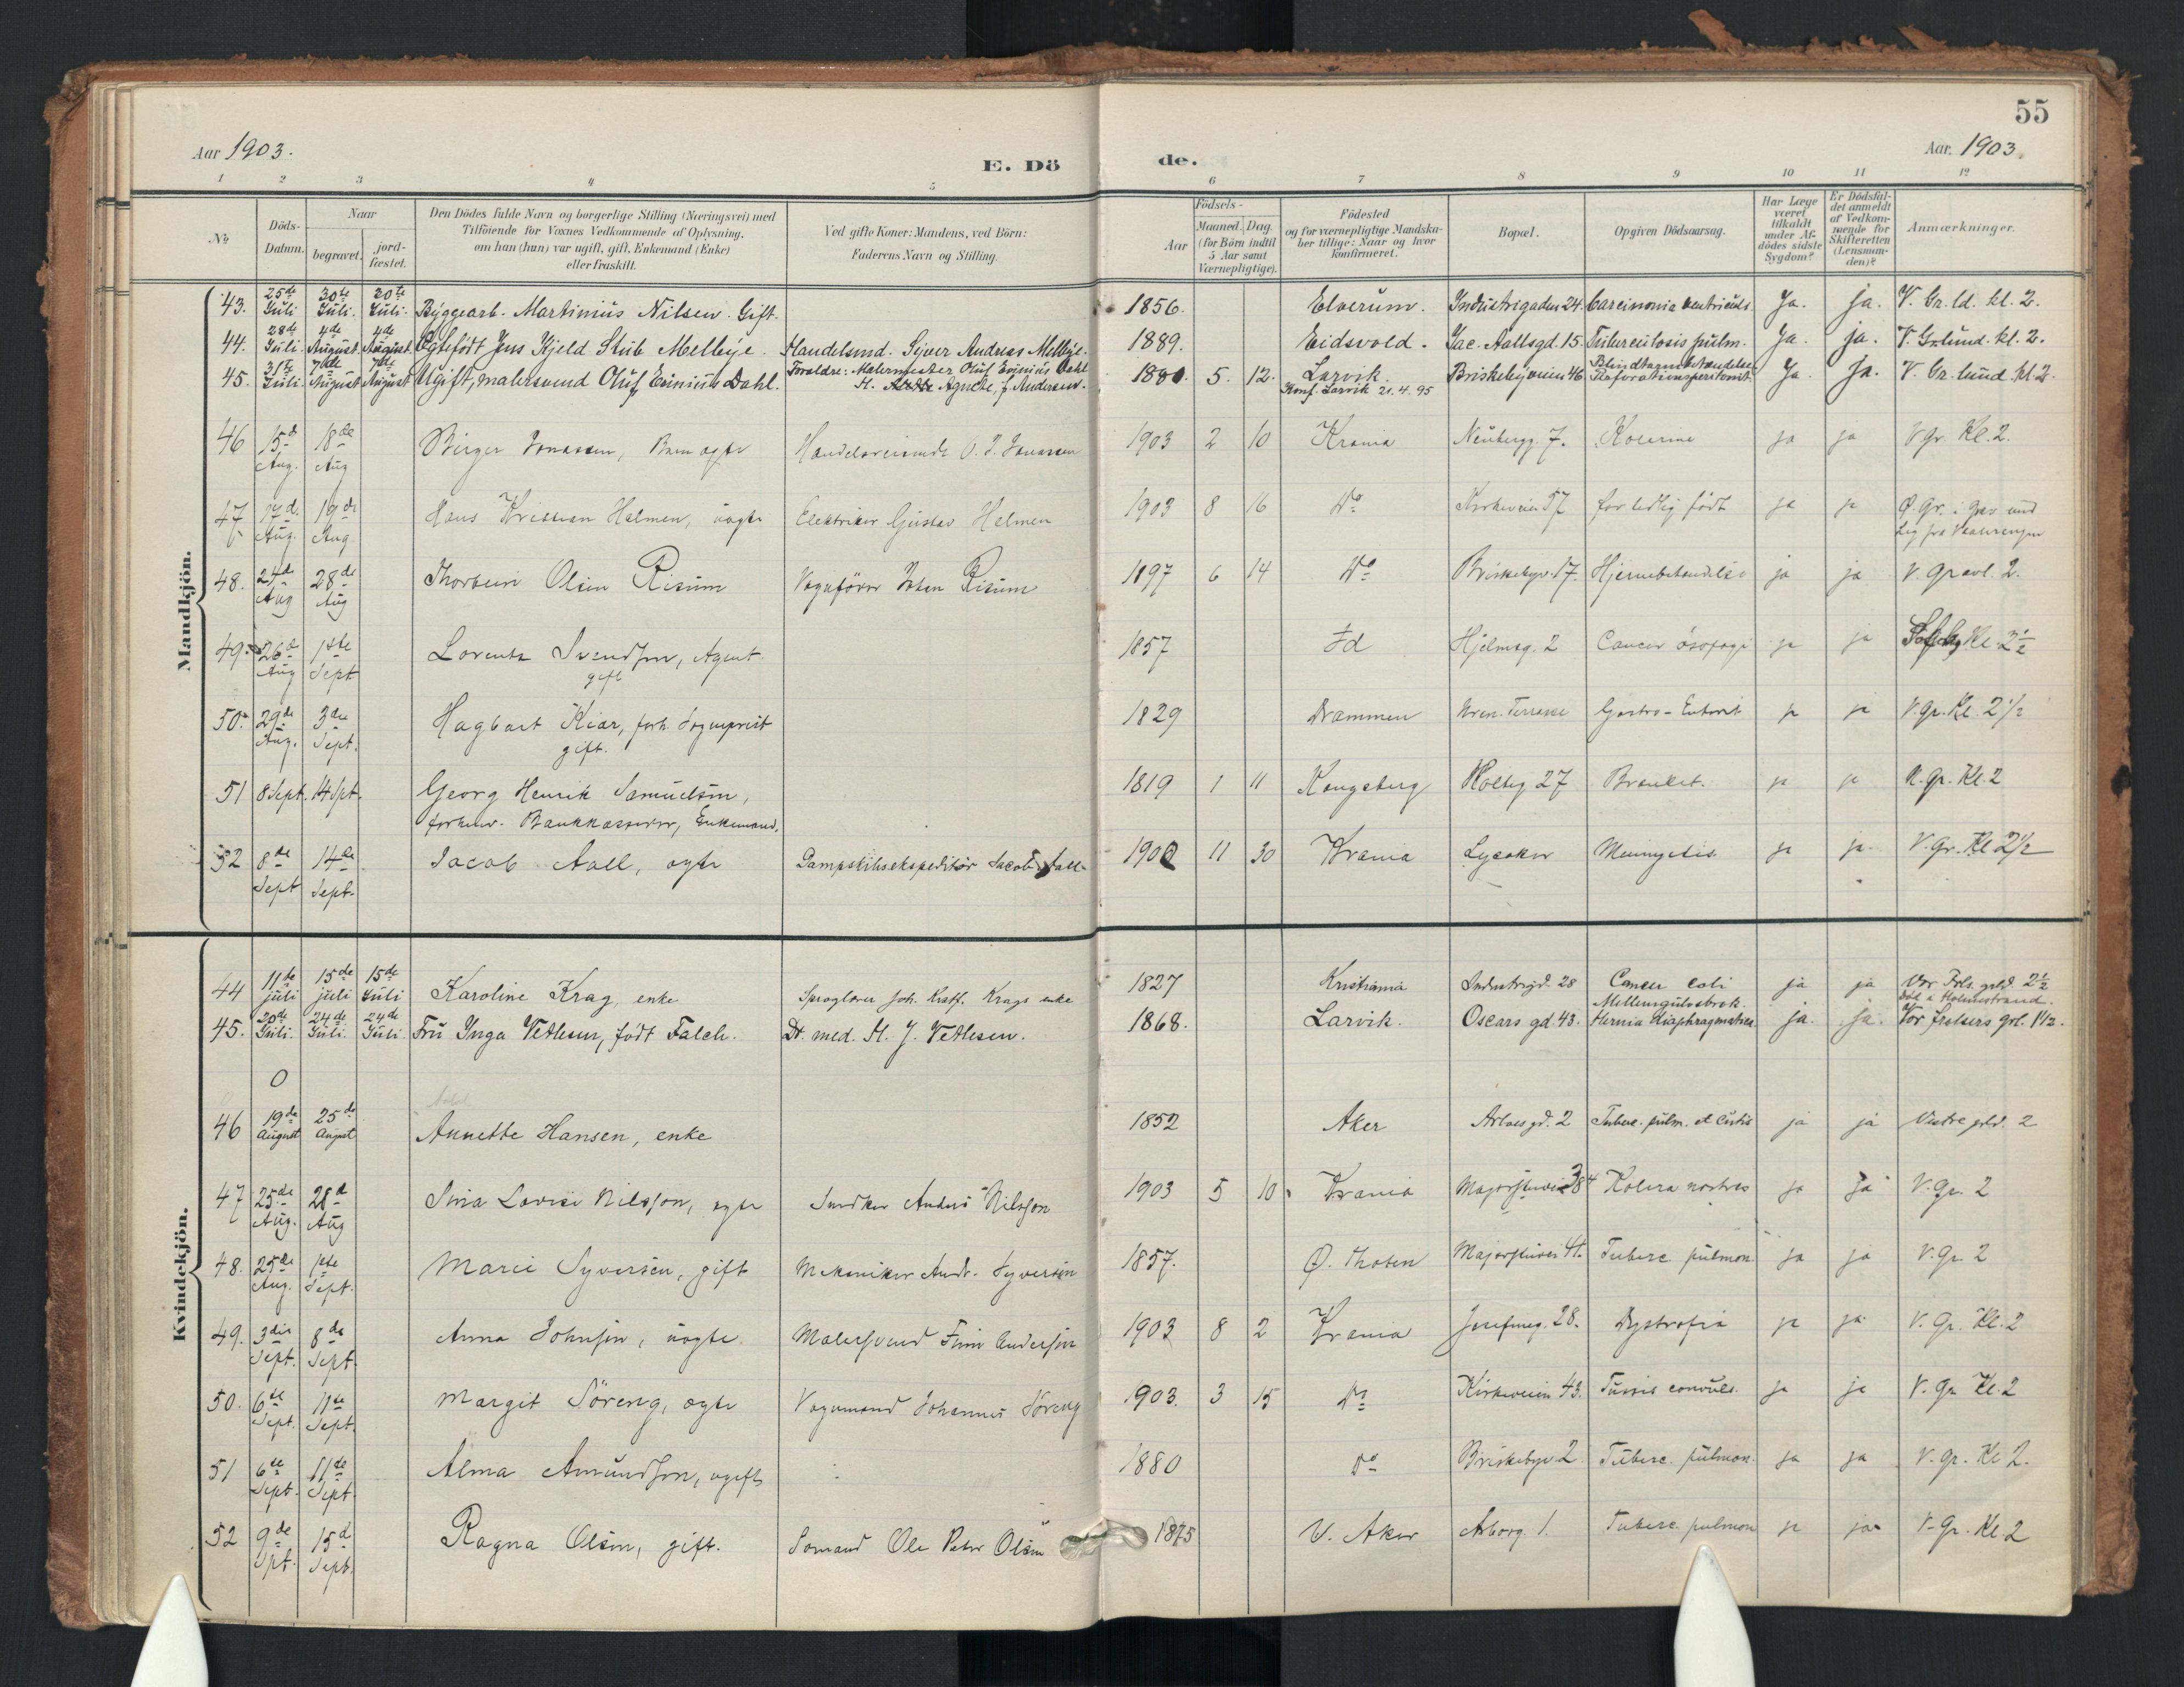 55
Aar 1903. E. Dö de. Aar 1903.
1 2 3 4 5 6 7 8 9 10 11 12
No
Döds-Datum.
Naar
begravet. jordfæstet.
Den Dödes fulde Navn og borgerlige Stilling (Næringsvei) med
Tilföiende for Voxnes Vedkommende af Oplysning,
om han (hun) var ugift, gift, Enkemand (Enke)
eller fraskilt.
Ved gifte Koner: Mandens, ved Börn:
Faderens Navn og Stilling.
Födsels-
Aar Maaned. Dag.
(for Börn indtil
5 Aar samt
Værnepligtige).
Födested
og for værnepligtige Mandska-
ber tillige: Naar og hvor
konfirmeret.
Bopæl.
Opgiven Dödsaarsag.
Har Læge
været
tilkaldt
under Af-
dödes sidste
Sygdom?
Er Dödsfal-
det anmeldt
af Vedkom-
mende for
Skifteretten
(Lensman-
den)?
Anmærkninger.
Mandkjön.
43. 25de Juli 30te Juli. 30te Juli. Byggearb. Martinius Nilsen. Gift. 1856. Elverum. Industrigaden 24. Carcinonia ventriculi. Ja. ja. V. Gr. ld. kl. 2.
44. 28de Juli 4de August 4de August Ægtefödt Jens Kjeld Stub Mellbye. Handelsmd. Syver Andreas Mellbye. 1889. Eidsvold. Jac. Aallsgd. 15 Tuberculosis pulm. Ja. ja. V. Gr.lund. kl. 2.
45. 31te Juli. 7de August 7de August Ugift, malersvend Oluf Erinius Dahl. Foreldre: Malermester Oluf Erinius Dahl
H. Agnethe, f. Andersen. 1880. 5. 12. Larvik. Konf. Larvik 21.4.95 Briskebyveien 46 Blindtarmbetændelse Perforationsperitonit. Ja. Ja. V. Gr. lund. kl 2.
46 15d Aug. 18de Aug Birger Jonassen, Barn ægte Handelsreisende O. J. Jonassen 1903 2 10 Krania Neubergg. 7. Kolerine ja ja V gr. Kl. 2.
47 17d. Aug. 19de Aug Hans Kristian Helmen, uægte Elektriker Gustav Helmen 1903 8 16 Do Kirkeveien 57 for tidlig födt ja ja Ö. Gr. i Grav med
Lig fra Vaalerengen
48. 24d Aug 28de Aug Thorbein Olsen Risum Vognförer Johan Risum 1897 6 14 Do Briskebyv. 17. Hjernebetændelse ja ja V. Gravl. 2.
49. 26d Aug 1ste Sept Lorentz Svendsen, Agent. gift 1857 Fd Hjelmsg. 2 Cancer ösofagi ja ja Kl. 2½
50. 29de Aug. 3die Sept. Hagbart Kiær, forh. Sogneprest gift. 1829 Drammen Uran. Terrasse Gastro-Enterit ja ja V. gr. Kl. 2 1/2
51 8 Sept. 14 Spt. Georg Henrik Samuelsen,
forhenv. Bankkasserer, Enkemand. 1819 1 11 Kongsberg Holteg 27 Bronkit. ja ja V. gr. Kl. 2
52 8de Sept 14de Sept. Jacob Aall, ægte Dampskibsekspeditör Jacob Aall 1902 11 30 Krania Lysaker Meningitis. ja ja V. Gr. Kl 2½
Kvindekjön.
44 11te juli 15de juli 15de Juli Karoline Krag, enke Sproglærer Joh. Kristf. Krags enke 1827 Kristiania Industrigd. 28 Cancer coli ja ja Vor Frls. grld. 2½
45. 20de Juli. 24de Juli. 24de Juli. Fru Inga Vetlesen, födt Falch. Dr. med. H. J. Vetlesen. 1868. Larvik. Oscars gd. 43. Mellemgulvsbrok. Hernia diaphragmatica ja. ja. Död i Holmestrand. Vor frelsers grl. 1½.
0
46 19de August 25de August Annette Hansen, enke 1852 Aker Arboes gd. 2 Tuberc. pulm. et cutis ja ja Vestre grld. 2
47 25de Aug. 28d Aug Sina Lovise Nilsson, ægte Snedker Anders Nilsson 1903 5 10 Krania Majorstuvei 38 Kolera nostras ja ja V. gr. 2
48. 25de Aug. 1ste Sept. Marie Syversen, gift Mekaniker Andr. Syversen 1857. Ö. Thoten Majorstuvei 41. Tuberc. pulmon. ja ja V. Gr. 2
49. 3die Sept. 8de Sept. Anna Johnsen, uægte Malersvend Finn Andersen 1903 8 2 Krania Josefineg. 28. Dystrofia ja ja V. Gr. Kl. 2
50. 6te Sept. 11te Sept. Margit Söreng, ægte Vognmand Johannes Söreng 1903. 3 15 Do Kirkeveien 43. Tussis convuls. ja ja V. Gr. Kl. 2
51 6te Sept. 11te Sept. Alma Amundsen, ugift 1880 Do Briskebyv 2 Tuberc. pulmon. ja ja V. gr. Kl 2.
52 9de Spt. 15d Sept. Ragna Olsen, gift. Sömand Ole Peter Olsen 1875 V. Aker Arborg. 1. Tuberc. pulmon ja ja V. Gr. Kl. 2